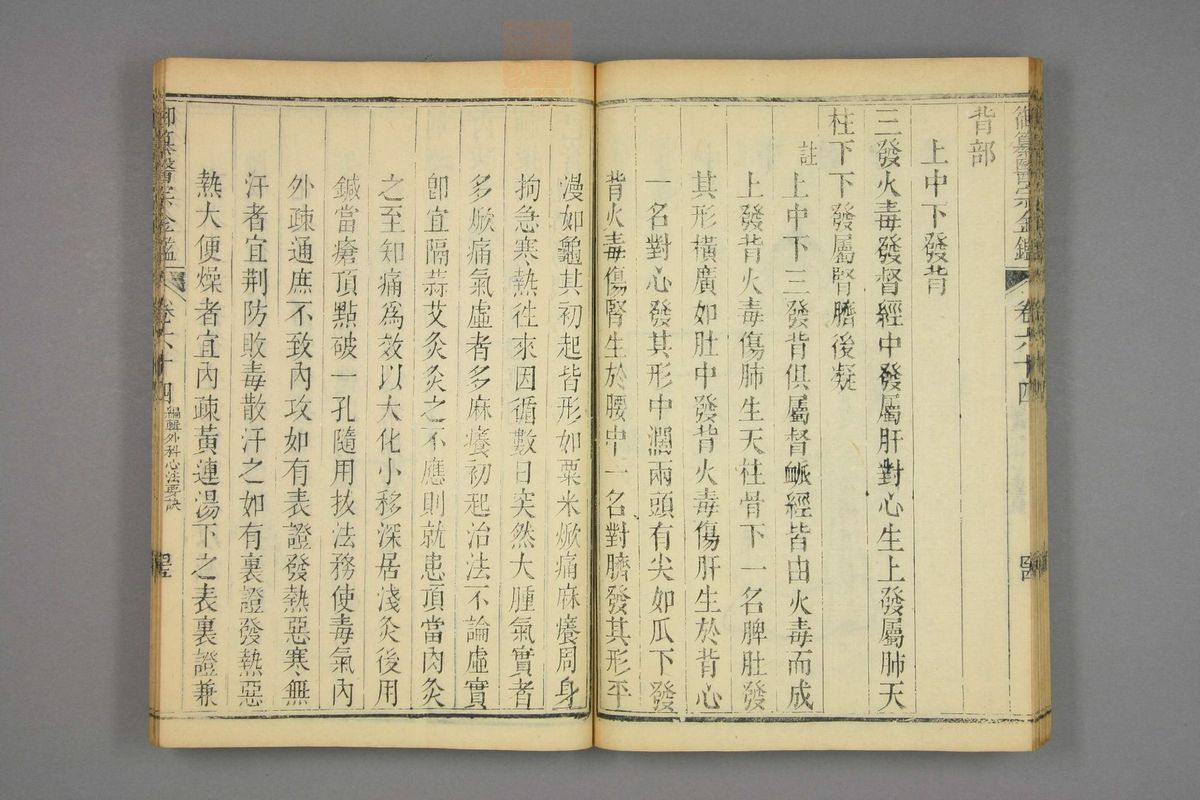 御纂醫宗金鑑 卷六十四
背部
上中下發背
三發火毒發督經中發屬肝對心生上發屬肺天
柱下下發屬腎臍後凝
註上中下三發背俱屬督衇經皆由火毒而成
上發背火毒傷肺生天柱骨下一名脾肚發
其形橫廣如肚中發背火毒傷肝生於背心
一名對心發其形中濶兩頭有尖如瓜下發
背火毒傷腎生於腰中一名對臍發其形平
漫如龜其初起皆形如粟米焮痛麻癢周身
拘急寒熱徃來因循數日突然大腫氣實者
多焮痛氣虛者多麻癢初起治法不論虛實
卽宜隔蒜艾灸灸之不應則就患頂當肉灸
之至知痛爲效以大化小移深居淺灸後用
鍼當瘡頂點破一孔隨用拔法務使毒氣內
外疎通庶不致內攻如有表證發熱惡寒無
汗者宜荆防敗毒散汗之如有裏證發熱惡
熱大便燥者宜內疎黃連湯下之表裏證兼
御纂醫宗金鑑 卷六十四 編輯外科心法要訣